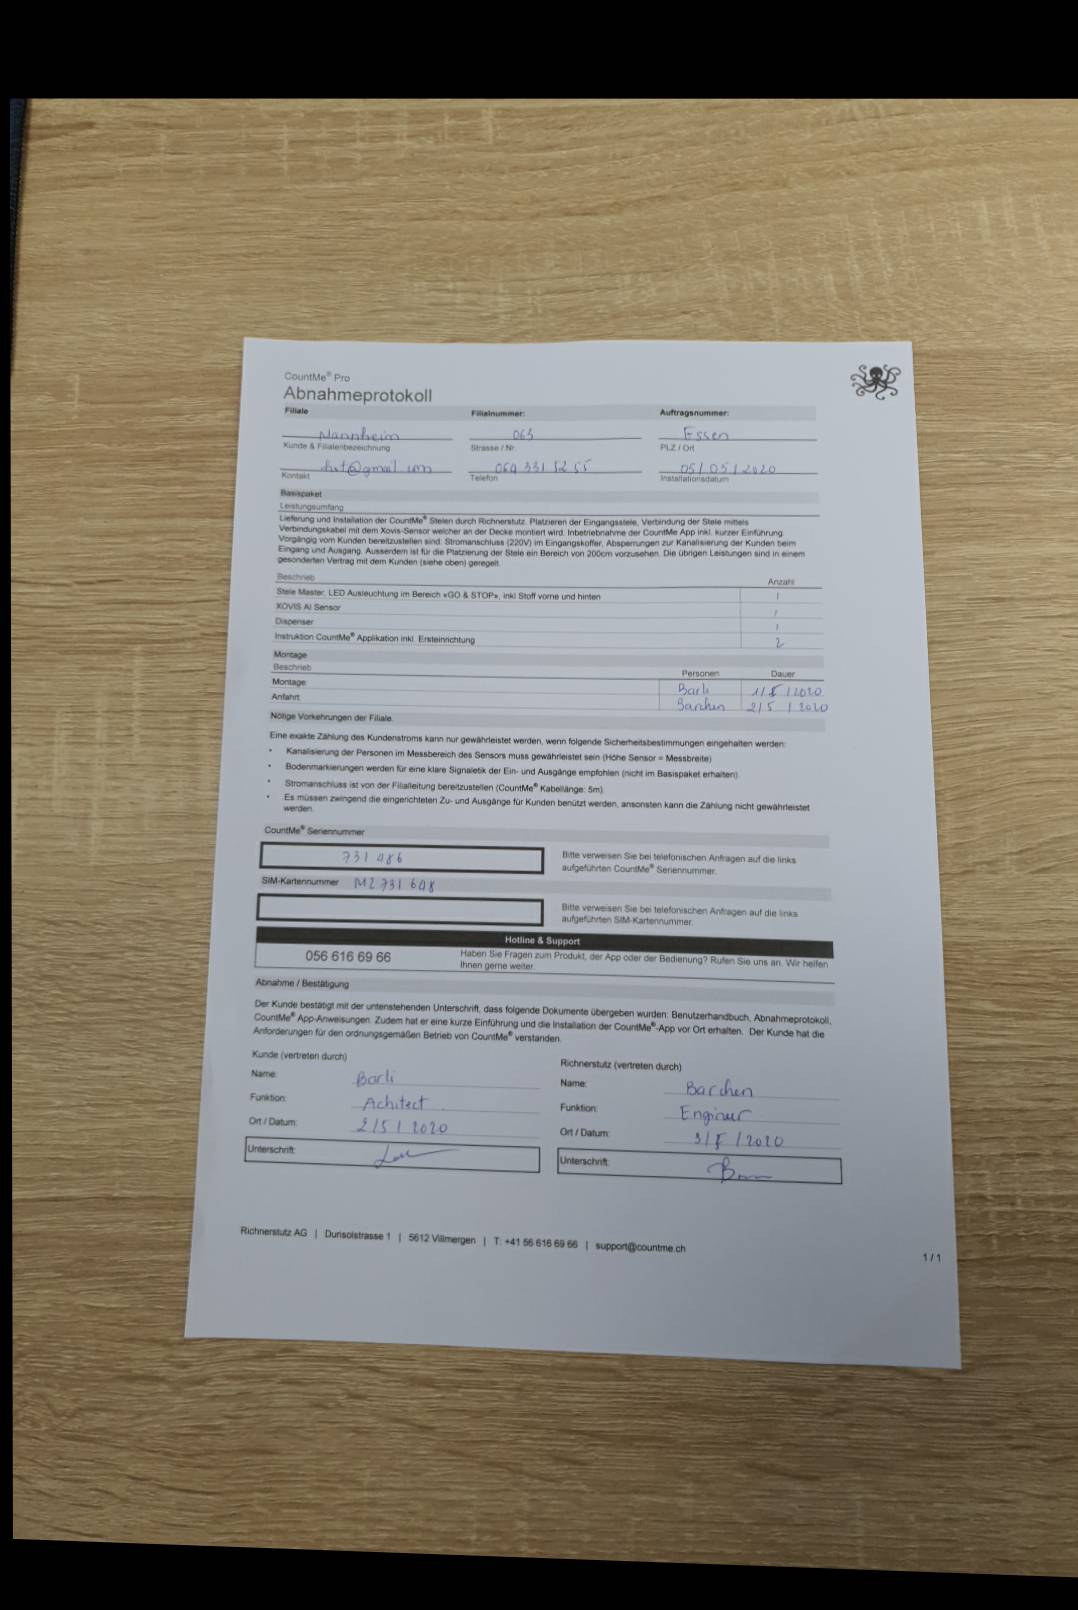 CountMe® Pro
Abnahmeprotokoll
Filiale Filialnummer: Auftragsnummer:
Mannheim 063 Essen
Kunde & Filialenbezeichnung Strasse / Nr. PLZ / Ort
@gmail 069 331 52 55 05/05/2020
Kontakt Telefon Installationsdatum
Basispaket
Leistungsumfang
Lieferung und Installation der CountMe® Stelen durch Richnerstutz. Platzieren der Eingangsstele, Verbindung der Stele mittels
Verbindungskabel mit dem Xovis-Sensor welcher an der Decke montiert wird. Inbetriebnahme der CountMe App inkl. kurzer Einführung.
Vorgängig vom Kunden bereitzustellen sind: Stromanschluss (220V) im Eingangskoffer, Absperrungen zur Kanalisierung der Kunden beim
Eingang und Ausgang. Ausserdem ist für die Platzierung der Stele ein Bereich von 200cm vorzusehen. Die übrigen Leistungen sind in einem
gesonderten Vertrag mit dem Kunden (siehe oben) geregelt.
Beschrieb Anzahl
Stele Master, LED Ausleuchtung im Bereich «GO & STOP», inkl Stoff vorne und hinten 1
XOVIS AI Sensor 1
Dispenser 1
Instruktion CountMe® Applikation inkl. Ersteinrichtung 2
Montage
Beschrieb Personen Dauer
Montage: Barli 1/5/2020
Anfahrt: Barchen 2/5/2020
Nötige Vorkehrungen der Filiale.
Eine exakte Zählung des Kundenstroms kann nur gewährleistet werden, wenn folgende Sicherheitsbestimmungen eingehalten werden:
• Kanalisierung der Personen im Messbereich des Sensors muss gewährleistet sein (Höhe Sensor = Messbreite)
• Bodenmarkierungen werden für eine klare Signaletik der Ein- und Ausgänge empfohlen (nicht im Basispaket erhalten).
• Stromanschluss ist von der Filialleitung bereitzustellen (CountMe® Kabellänge: 5m).
• Es müssen zwingend die eingerichteten Zu- und Ausgänge für Kunden benützt werden, ansonsten kann die Zählung nicht gewährleistet
werden.
CountMe® Seriennummer
731 086 Bitte verweisen Sie bei telefonischen Anfragen auf die links
aufgeführten CountMe® Seriennummer.
SIM-Kartennummer MZ 731 608
Bitte verweisen Sie bei telefonischen Anfragen auf die links
aufgeführten SIM-Kartennummer.
Hotline & Support
056 616 69 66 Haben Sie Fragen zum Produkt, der App oder der Bedienung? Rufen Sie uns an. Wir helfen
Ihnen gerne weiter.
Abnahme / Bestätigung
Der Kunde bestätigt mit der untenstehenden Unterschrift, dass folgende Dokumente übergeben wurden: Benutzerhandbuch, Abnahmeprotokoll,
CountMe® App-Anweisungen. Zudem hat er eine kurze Einführung und die Installation der CountMe®-App vor Ort erhalten. Der Kunde hat die
Anforderungen für den ordnungsgemäßen Betrieb von CountMe® verstanden.
Kunde (vertreten durch) Richnerstutz (vertreten durch)
Name: Barli Name: Barchen
Funktion: Achitect Funktion: Enginer
Ort / Datum: 2/5/2020 Ort / Datum: 3/5/2020
Unterschrift: Unterschrift:
Richnerstutz AG | Durisolstrasse 1 | 5612 Villmergen | T: +41 56 616 69 66 | support@countme.ch
1 / 1